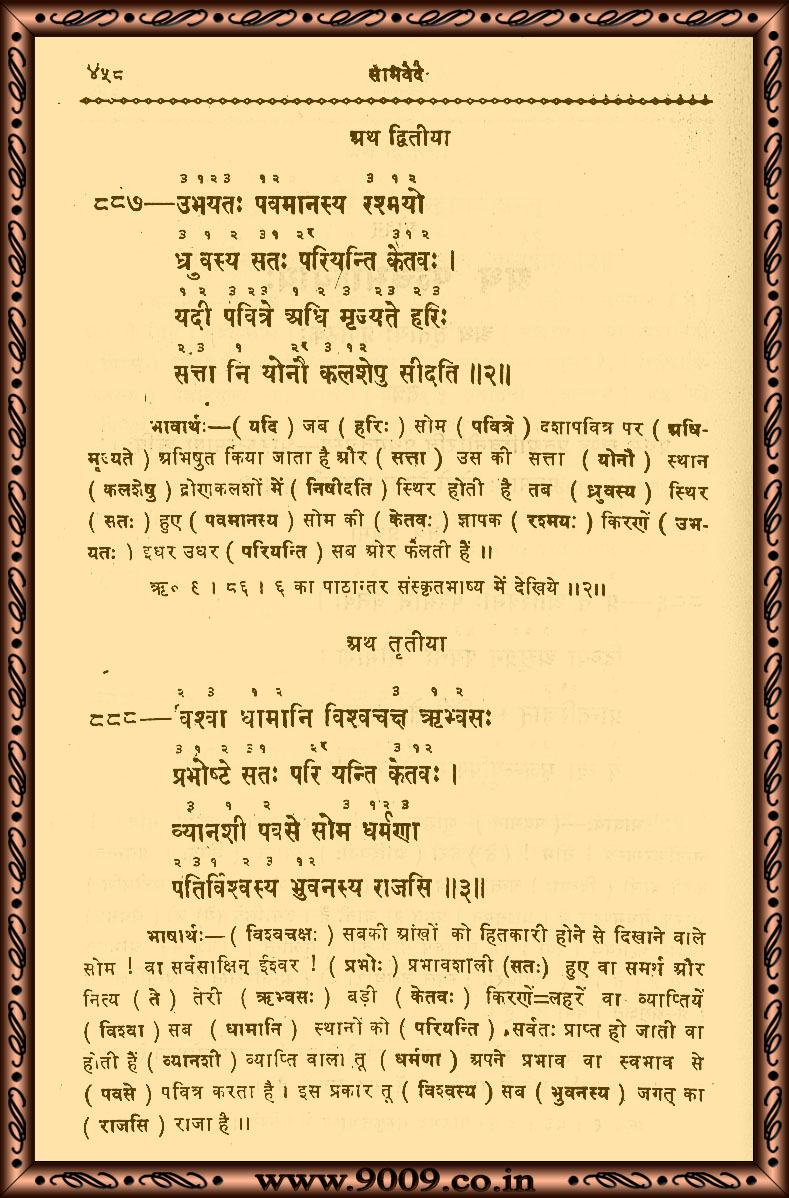 ४५८ सामवेदे
अथ द्वितीया
३ १ २ ३ १ २ ३ १ २
८८७—उभयतः पवमानस्य रश्मयो
३ १ २ ३१ २र ३१ २
ध्रुवस्य सतः परियन्ति केतवः ।
१ २ ३ २३ १ २ ३ २३ २ ३
यदी पवित्रे अधि मृज्यते हरिः
२ ३ १ २र ३ १२
सत्ता नि योनौ कलशेषु सीदति ॥२॥
भावार्थः—( यदि ) जब ( हरिः ) सोम ( पवित्रे ) दशापवित्र पर ( अधि-
मृज्यते ) अभिषुत किया जाता है और ( सत्ता ) उस की सत्ता ( योनौ ) स्थान
( कलशेषु ) द्रोणकलशों में ( निषीदति ) स्थिर होती है तब ( ध्रुवस्य ) स्थिर
( सतः ) हुए ( पवमानस्य ) सोम की ( केतवः ) ज्ञापक ( रश्मयः ) किरणें ( उभ-
यतः ) इधर उधर ( परियन्ति ) सब ओर फैलती हैं ॥
ऋ० ९ । ८६ । ६ का पाठान्तर संस्कृतभाष्य में देखिये ॥२॥
अथ तृतीया
२ ३ १ २ ३ १ २
८८८—विश्वा धामानि विश्वचक्ष ऋभ्वसः
३ १ २ ३१ २र ३ १२
प्रभोष्टे सतः परि यन्ति केतवः ।
३ १ २ ३ १२ ३
व्यानशी पवसे सोम धर्मणा
२ ३ १ २ ३ १२
पतिर्विश्वस्य भुवनस्य राजसि ॥३॥
भाषार्थः—( विश्वचक्षः ) सबकी आंखों को हितकारी होने से दिखाने वाले
सोम ! वा सर्वसाक्षिन् ईश्वर ! ( प्रभोः ) प्रभावशाली (सतः) हुए वा समर्थ और
नित्य ( ते ) तेरी ( ऋभ्वसः ) बड़ी ( केतवः ) किरणें=लहरें वा व्याप्तियें
( विश्वा ) सब ( धामानि ) स्थानों को ( परियन्ति ) सर्वतः प्राप्त हो जाती वा
होती हैं ( व्यानशी ) व्याप्ति वाला तू ( धर्मणा ) अपने प्रभाव वा स्वभाव से
( पवसे ) पवित्र करता है । इस प्रकार तू ( विश्वस्य ) सब ( भुवनस्य ) जगत् का
( राजसि ) राजा है ॥
www.9009.co.in